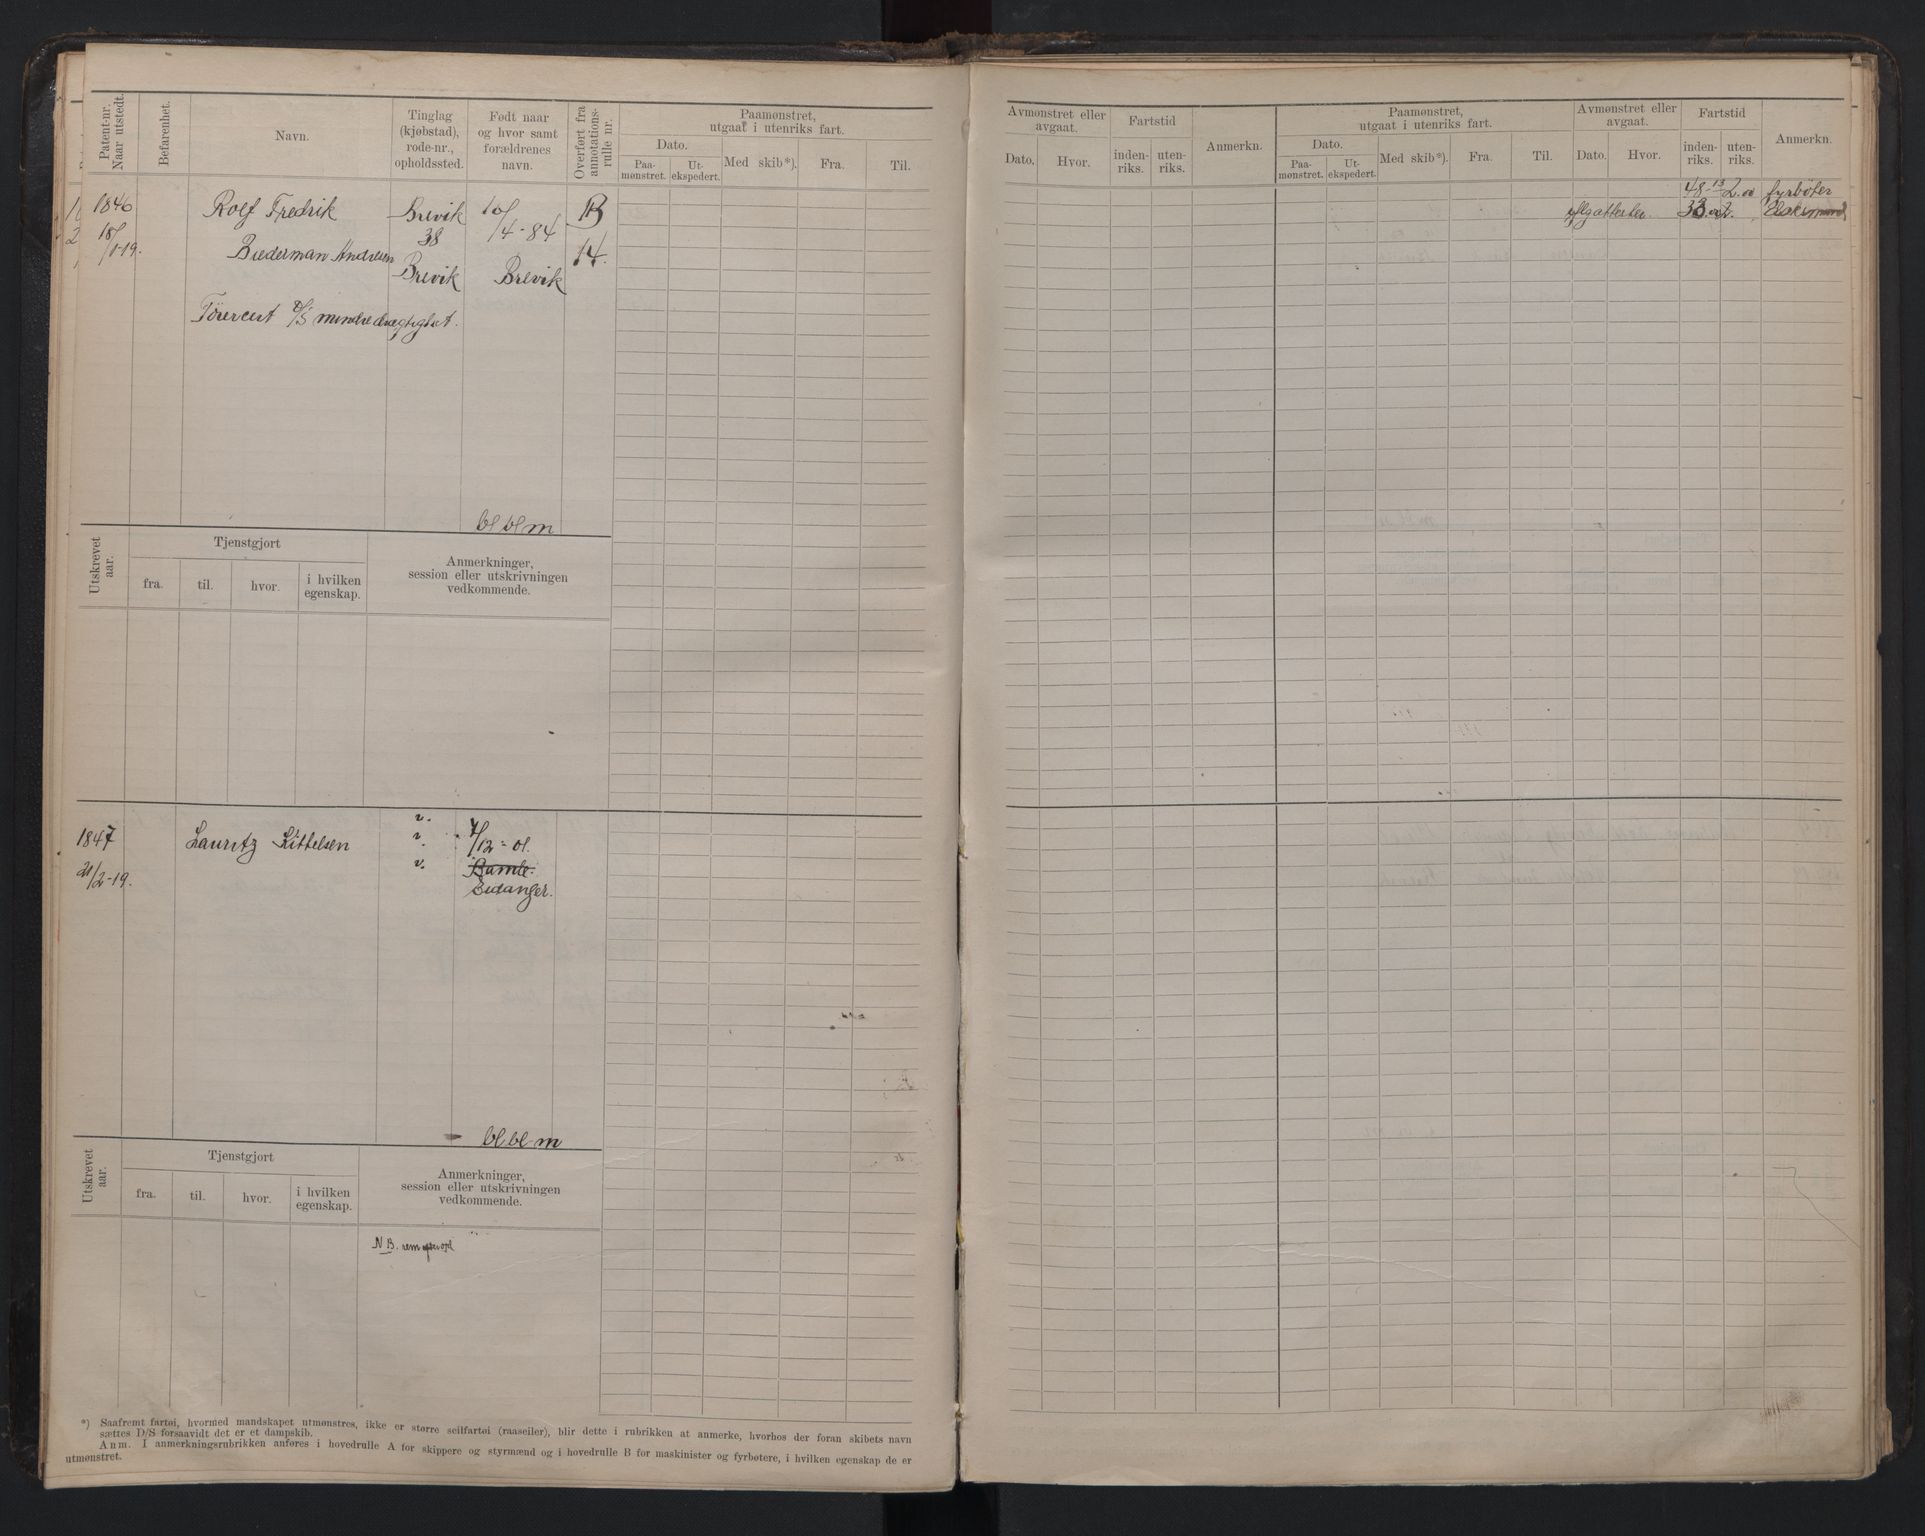 Patent-nr.
Naar utstedt.
Befarenhet.
Navn.
Tinglag
(kjøbstad),
rode-nr.,
opholdssted.
Født naar
og hvor samt
forældrenes
navn.
Overført fra
annotations-
rulle nr.
Paamønstret,
utgaat i utenriks fart.
Dato.
Paa-
mønstret.
Ut-
ekspedert.
Med skib*).
Fra.
Til.
Avmønstret eller
avgaat.
Dato.
Hvor.
Fartstid
inden-
riks.
uten-
riks.
Anmerkn.
Paamønstret,
utgaat i utenriks fart.
Dato.
Paa-
mønstret.
Ut-
ekspedert.
Med skib*).
Fra.
Til.
Avmønstret eller
avgaat.
Dato.
Hvor.
Fartstid
inden-
riks.
uten-
riks.
Anmerkn.
1846
Rolf Fredrik
Brevik
10/
B
48-
fyrbøter
38
/4-84
/1-19.
Biederman Andresen
14.
Brevik
Brevik
mindre drægtighet.
bl bl m
Utskrevet
aar.
Tjenstgjort
fra.
til.
hvor.
i hvilken
egenskap.
Anmerkninger,
session eller utskrivningen
vedkommende.
1847
Lauritz Kittelsen
v.
v.
v.
4/12-01.
21/2-19.
Bamle.
Eidanger.
bl. bl. m
Utskrevet
aar.
Tjenstgjort
fra.
til.
hvor.
i hvilken
egenskap.
Anmerkninger,
session eller utskrivningen
vedkommende.
NB.
*) Saafremt fartøi, hvormed mandskapet utmønstres, ikke er større seilfartøi (raaseiler), blir dette i rubrikken at anmerke, hvorhos der foran skibets navn
sættes D/S forsaavidt det er et dampskib.
Anm. I anmerkningsrubrikken anføres i hovedrulle A for skippere og styrmænd og i hovedrulle B for maskinister og fyrbøtere, i hvilken egenskap de er
utmønstret.